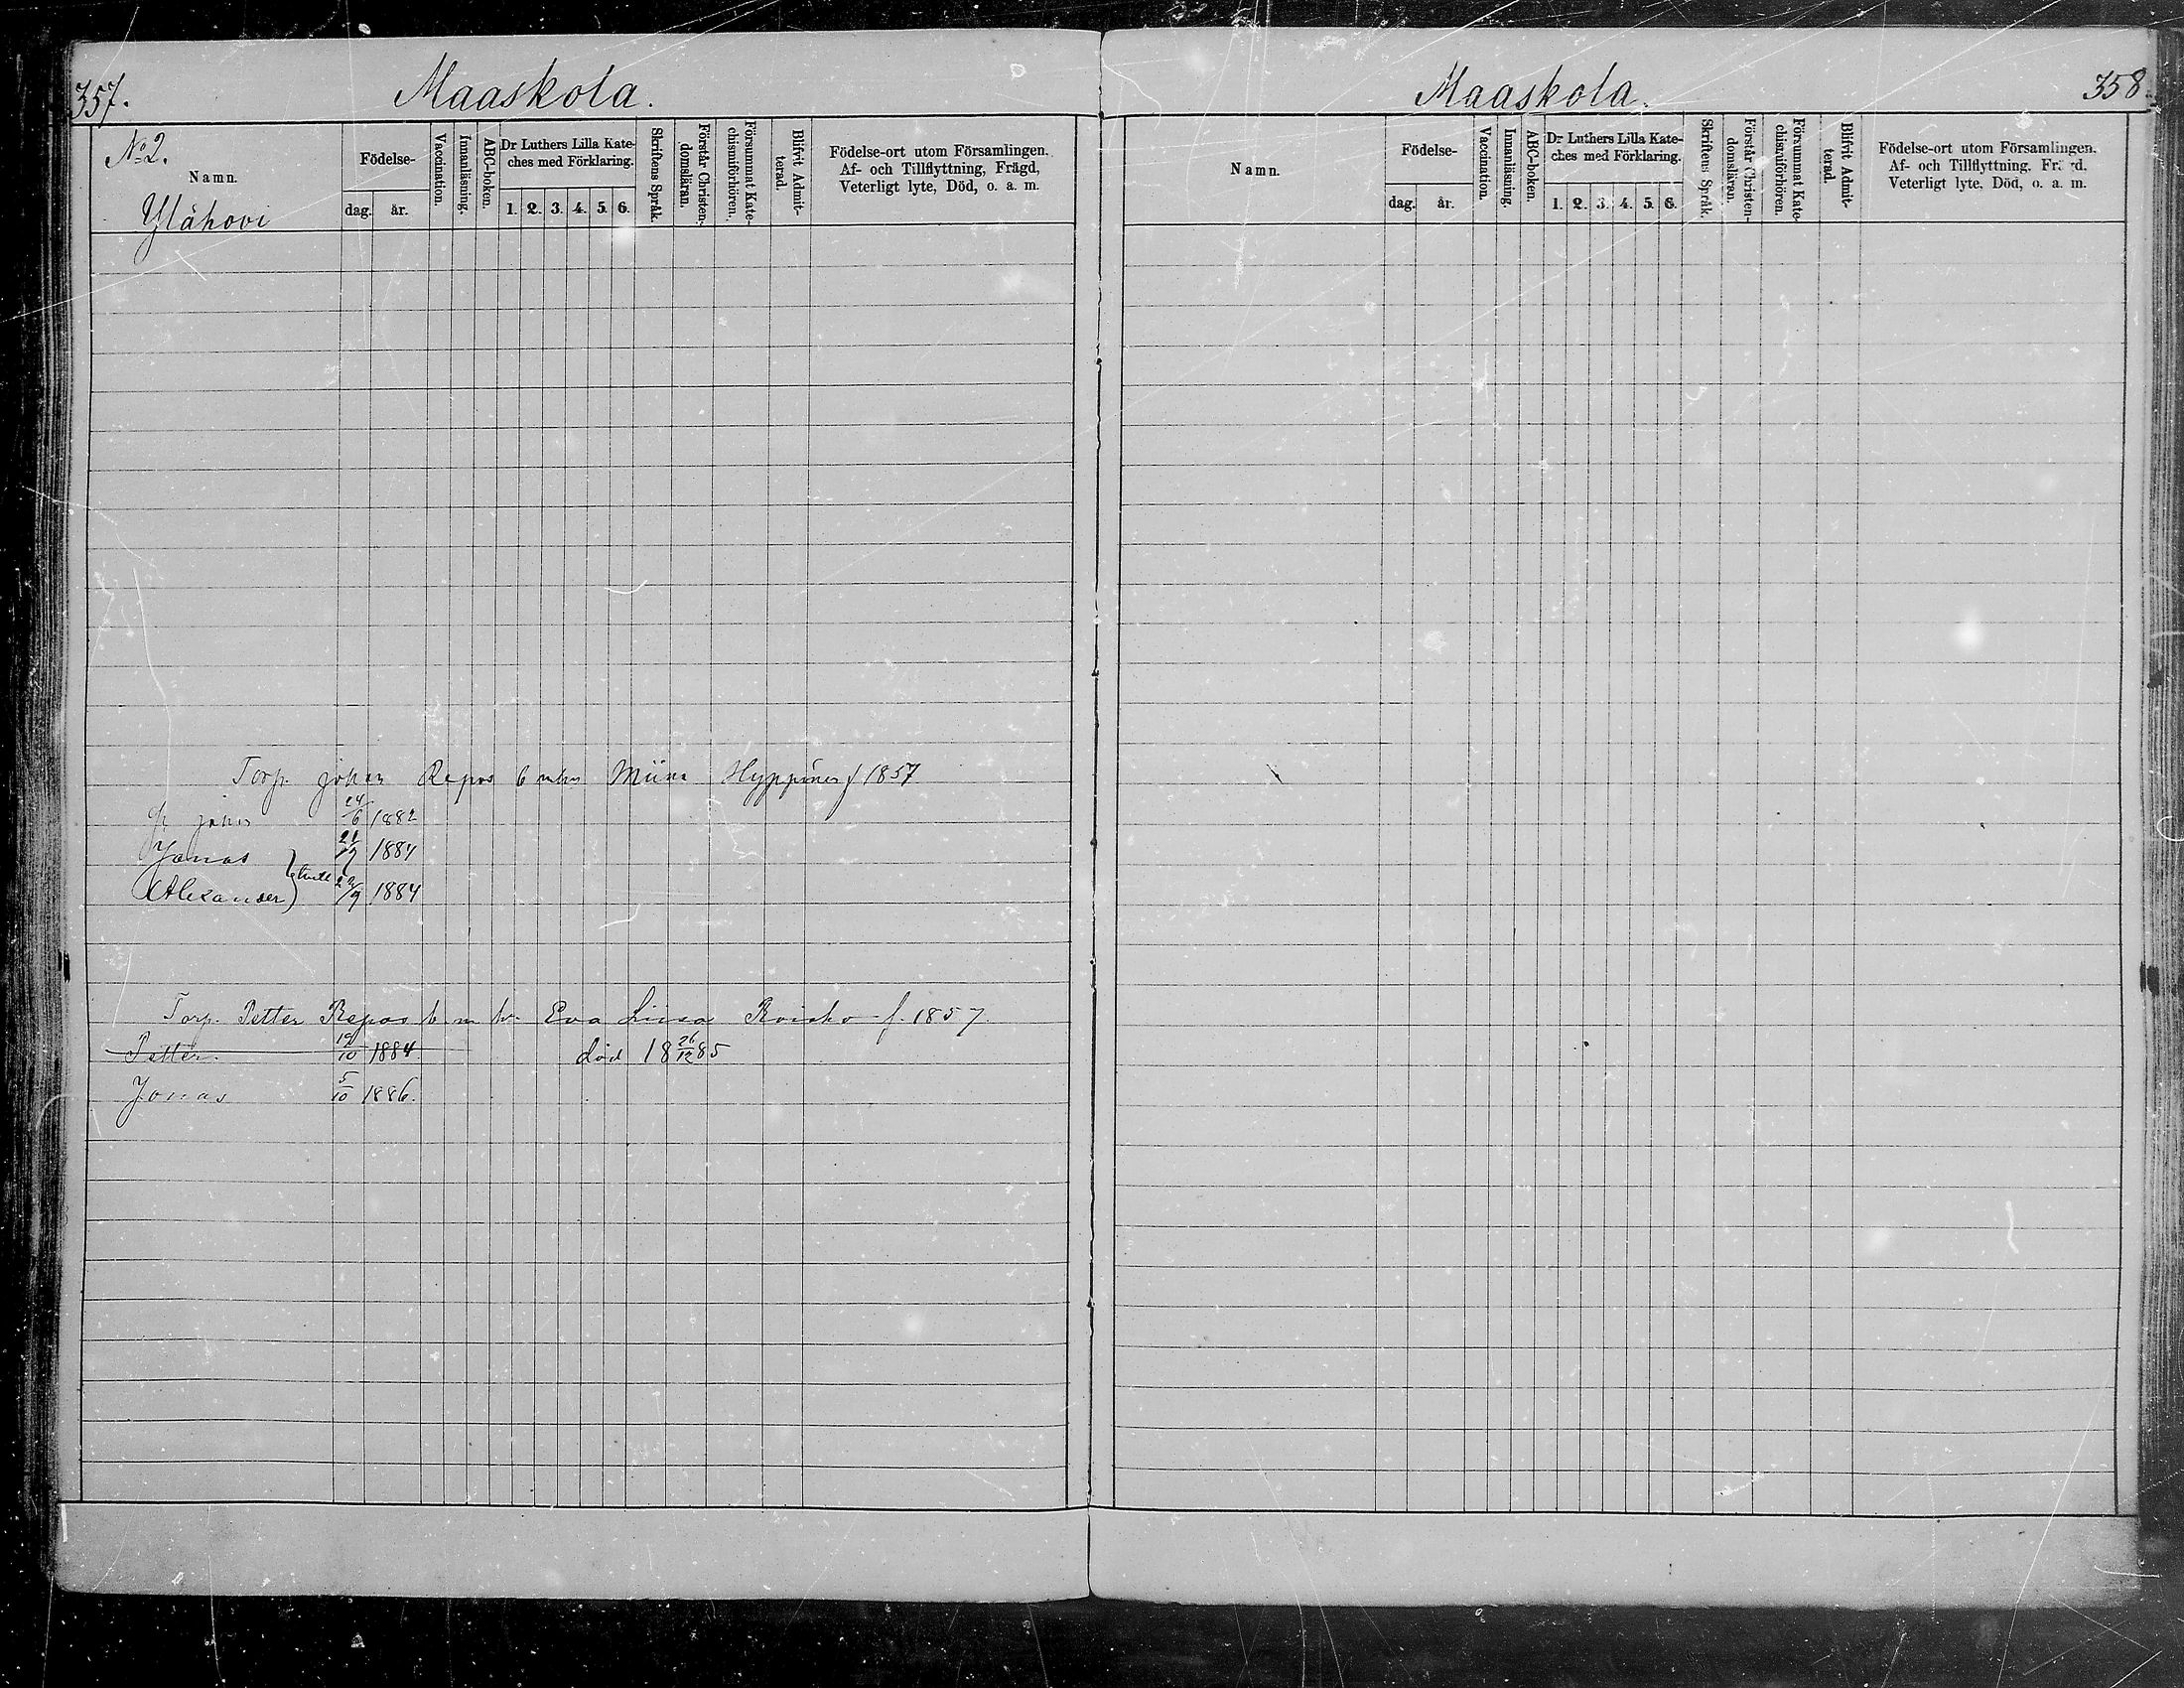 357.
Maaskola.
No 2.
Namn.
Ylähovi
Födelse-
dag. år.
Vaccination.
Innanläsning.
ABC-boken.
Dr Luthers Lilla Kate-
ches med Förklaring.
1. 2. 3. 4. 5. 6.
Skriftens Språk.
Förstår Christen-
domsläran.
Försummat Kate-
chismiförhören.
Blifvit Admit-
terad.
Födelse-ort utom Församlingen.
Af- och Tillflyttning, Frägd,
Veterligt lyte, Död, o. a. m.
Torp. Johan Repos Miina Hyppönen f 1857
24/6 1882
Jonas 1884
Alexander 1884
Torp. Petter Repos Eva Liisa f. 1857.
Petter. 19/10 1884. död 18 26/12 85
Jonas 5/10 1886.
Maaskola.
358.
Namn.
Födelse-
dag. år.
Vaccination.
Innanläsning.
ABC-boken.
Dr Luthers Lilla Kate-
ches med Förklaring.
1. 2. 3. 4. 5. 6.
Skriftens Språk.
Förstår Christen-
domsläran.
Försummat Kate-
chismiförhören.
Blifvit Admit-
terad.
Födelse-ort utom Församlingen.
Af- och Tillflyttning, Frägd.
Veterligt lyte, Död, o. a. m.